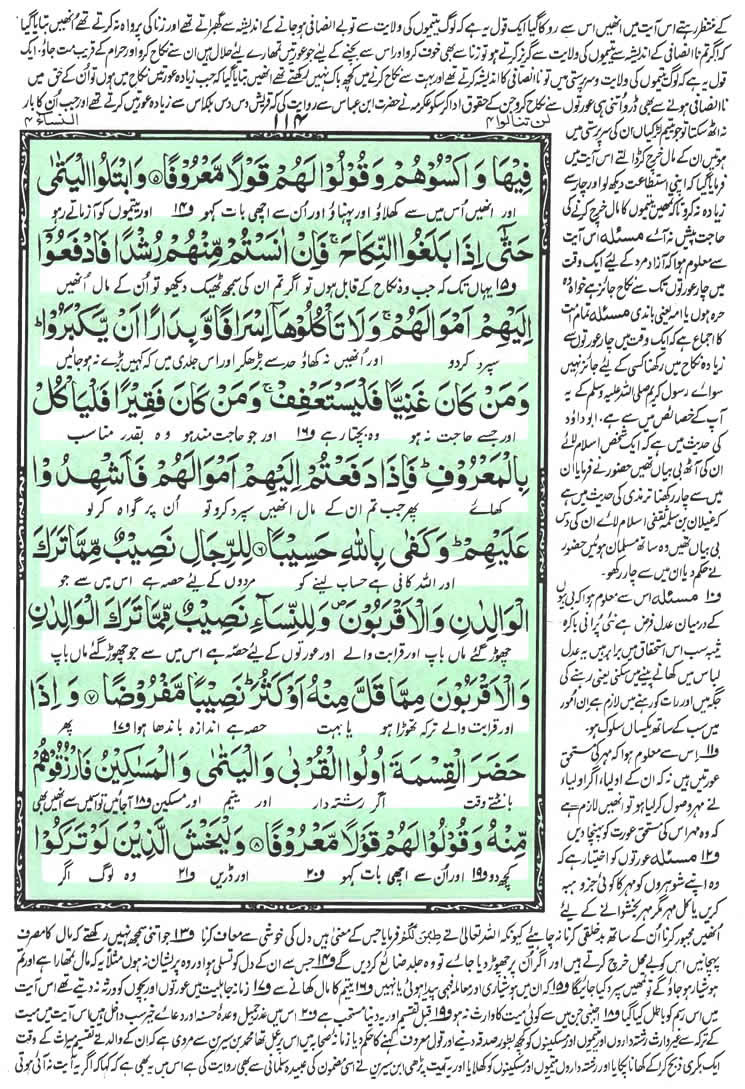 کے منتظر رہتے اس آیت میں انھیں اس سے روکا گیا ایک قول یہ ہے کہ لوگ یتیموں کی ولایت سے تو بے انصافی ہوجانے کے اندیشہ سے گھبراتے تھے اور زنا کی پرواہ نہ کرتے تھے اُنھیں بتایا گیا
کہ اگر تم نا انصافی کے اندیشہ سے یتیموں کی ولایت سے گریز کرتے ہو تو زنا سے بھی خوف کرو اور اس سے بچنے کے لئے جو عورتیں تمھارے لئے حلال ہیں ان سے نکاح کرو اور حرام کے قریب مت جاؤ۔ ایک
قول یہ ہے کہ لوگ یتیموں کی ولایت و سرپرستی میں تو نا انصافی کا اندیشہ کرتے تھے اور بہت سے نکاح کرنے میں کچھ باک نہیں رکھتے تھے اُنھیں بتایا گیا کہ جب زیادہ عورتیں نکاح میں ہوں تو اُن کے حق میں
نا انصافی ہونے سے بھی ڈرو اُتنی ہی عورتوں سے نکاح کرو جن کے حقوق ادا کرسکو عکرمہ نے حضرت ابن عباس سے روایت کی کہ قریش دس دس بلکہ اس سے زیادہ عورتیں کرتے تھے اور جب اُن کا بار
لن تنالوا ۴
۱۱۴
النساء ۴
فِیْهَا وَاكْسُوْهُمْ وَقُوْلُوْا لَهُمْ قَوْلًا مَّعْرُوْفًا ۵ وَابْتَلُوا الْیَتٰمٰى
اور انھیں اُس میں سے کھلاؤ اور پہناؤ اور اُن سے اچھی بات کہو و۱۴ اور یتیموں کو آزماتے رہو
حَتّٰۤى اِذَا بَلَغُوا النِّكَاحَ ۚ فَاِنْ اٰنَسْتُمْ مِّنْهُمْ رُشْدًا فَادْفَعُوْۤا
و۱۵ یہاں تک کہ جب وہ نکاح کے قابل ہوں تو اگر تم ان کی سمجھ ٹھیک دیکھو تو اُن کے مال اُنھیں
اِلَیْهِمْ اَمْوَالَهُمْ ۚ وَلَا تَاْكُلُوْهَاۤ اِسْرَافًا وَّبِدَارًا اَنْ یَّكْبَرُوْا ؕ
سپرد کردو اور اُنھیں نہ کھاؤ حد سے بڑھکر اور اس جلدی میں کہ کہیں بڑے نہ ہوجائیں
وَمَنْ كَانَ غَنِیًّا فَلْیَسْتَعْفِفْ ۚ وَمَنْ كَانَ فَقِیْرًا فَلْیَاْكُلْ
اور جسے حاجت نہ ہو وہ بچتا رہے و۱۶ اور جو حاجت مند ہو وہ بقدر مناسب
بِالْمَعْرُوْفِ ؕ فَاِذَا دَفَعْتُمْ اِلَیْهِمْ اَمْوَالَهُمْ فَاَشْهِدُوْا
کھائے پھر جب تم ان کے مال انھیں سپرد کرو تو اُن پر گواہ کرلو
عَلَیْهِمْ ؕ وَكَفٰى بِاللّٰهِ حَسِیْبًا ۶ لِلرِّجَالِ نَصِیْبٌ مِّمَّا تَرَكَ
اور اللہ کافی ہے حساب لینے کو مردوں کے لئے حصہ ہے اس میں سے جو
الْوَالِدٰنِ وَالْاَقْرَبُوْنَ ۪ وَلِلنِّسَآءِ نَصِیْبٌ مِّمَّا تَرَكَ الْوَالِدٰنِ
چھوڑ گئے ماں باپ اور قرابت والے اور عورتوں کے لئے حصہ ہے اس میں سے جو چھوڑ گئے ماں باپ
وَالْاَقْرَبُوْنَ مِمَّا قَلَّ مِنْهُ اَوْ كَثُرَ ؕ نَصِیْبًا مَّفْرُوْضًا ۷ وَاِذَا
اور قرابت والے ترکہ تھوڑا ہو یا بہت حصہ ہے اندازہ باندھا ہوا و۱۷ پھر
حَضَرَ الْقِسْمَةَ اُولُوا الْقُرْبٰى وَالْیَتٰمٰى وَالْمَسٰكِیْنُ فَارْزُقُوْهُمْ
بانٹتے وقت اگر رشتہ دار اور یتیم اور مسکین و۱۸ آجائیں تو اس میں سے انھیں بھی
مِّنْهُ وَقُوْلُوْا لَهُمْ قَوْلًا مَّعْرُوْفًا ۸ وَلْیَخْشَ الَّذِیْنَ لَوْ تَرَكُوْا
کچھ دو و۱۹ اور اُن سے اچھی بات کہو و۲۰ اور ڈریں و۲۱ وہ لوگ اگر
نہ اٹھ سکتا تو جو یتیم لڑکیاں ان کی سرپرستی میں
ہوتیں ان کے مال خرچ کر ڈالتے اس آیت میں
فرمایا گیا کہ اپنی استطاعت دیکھ لو اور چار سے
زیادہ نہ کرو تاکہ تمھیں یتیموں کا مال خرچ کرنے کی
حاجت پیش نہ آئے مسئلہ اس آیت
سے معلوم ہوا کہ آزاد مرد کے لئے ایک وقت
میں چار عورتوں تک سے نکاح جائز ہے خواہ وہ
حرہ ہوں یا امہ یعنی باندی مسئلہ تمام امت
کا اجماع ہے کہ ایک وقت میں چار عورتوں سے
زیادہ نکاح میں رکھنا کسی کے لئے جائز نہیں
سوائے رسول کریم صلی اللہ علیہ وسلم کے یہ
آپ کے خصائص میں سے ہے۔ ابو داؤد
کی حدیث میں ہے کہ ایک شخص اسلام لائے
ان کی آٹھ بی بیاں تھیں حضور نے فرمایا ان
میں سے چار رکھنا ترمذی کی حدیث میں ہے
کہ غیلان بن سلمہ ثقفی اسلام لائے ان کی دس
بی بیاں تھیں وہ ساتھ مسلمان ہوئیں حضور
نے حکم دیا ان میں سے چار رکھو۔
و۱۰ مسئلہ اس سے معلوم ہوا کہ بی بیوں
کے درمیان عدل فرض ہے نئی پرانی باکرہ
ثیبہ سب اس استحقاق میں برابر ہیں یہ عدل
لباس میں کھانے پینے میں سکنی یعنی رہنے کی
جگہ میں اور رات کو رہنے میں لازم ہے ان امور
میں سب کے ساتھ یکساں سلوک ہو۔
و۱۱ اس سے معلوم ہوا کہ مہر کی مستحق
عورتیں ہیں نہ کہ ان کے اولیاء اگر اولیاء
نے مہر وصول کرلیا ہو تو انھیں لازم ہے
کہ وہ مہر اس کی مستحق عورت کو پہنچا دیں
و۱۲ مسئلہ عورتوں کو اختیار ہے کہ
وہ اپنے شوہروں کو مہر کا کوئی جزو ہبہ
کریں یا کل مہر مگر مہر بخشوانے کے لئے
انھیں مجبور کرنا اُن کے ساتھ بدخلقی کرنا نہ چاہئے کیونکہ اللہ تعالیٰ نے طِبْنَ لَكُمْ فرمایا جس کے معنیٰ ہیں دل کی خوشی سے معاف کرنا و۱۳ جو اتنی سمجھ نہیں رکھتے کہ مال کا مصرف
پہچانیں اس کو بے محل خرچ کرتے ہیں اور اگر ان پر چھوڑ دیا جائے تو وہ جلد ضائع کردیں گے و۱۴ جس سے ان کے دل کو تسلی ہو اور وہ پریشان نہ ہوں مثلاً یہ کہ مال تمھارا ہے اور تم
ہوشیار ہو جاؤ گے تو تمھیں سپرد کیا جائیگا و۱۵ کہ ان میں ہوشیاری اور معاملہ فہمی پیدا ہوئی یا نہیں و۱۶ یتیم کا مال کھانے سے و۱۷ زمانہ جاہلیت میں عورتوں اور بچوں کو ورثہ نہ دیتے تھے اس آیت
میں اس رسم کو باطل کیا گیا و۱۸ اجنبی جن میں سے کوئی میت کا وارث نہ ہو و۱۹ قبل تقسیم اور یہ دینا مستحب ہے و۲۰ اس میں عذر جمیل وعدۂ حسنہ اور دعائے خیر سب داخل ہیں اس آیت میں میت
کے ترکہ سے غیر وارث رشتہ داروں اور یتیموں اور مسکینوں کو کچھ بطور صدقہ دینے اور قول معروف کہنے کا حکم دیا زمانۂ صحابہ میں اس پر عمل تھا محمد بن سیرین سے مروی ہے کہ ان کے والد نے تقسیم میراث کے وقت
ایک بکری ذبح کراکے کھانا پکایا اور رشتہ داروں یتیموں اور مسکینوں کو کھلایا اور یہ آیت پڑھی ابن سیرین نے اسی مضمون کی عبیدہ سلمانی سے بھی روایت کی ہے اس میں یہ بھی ہے کہ کہا کہ اگر یہ آیت نہ آئی ہوتی